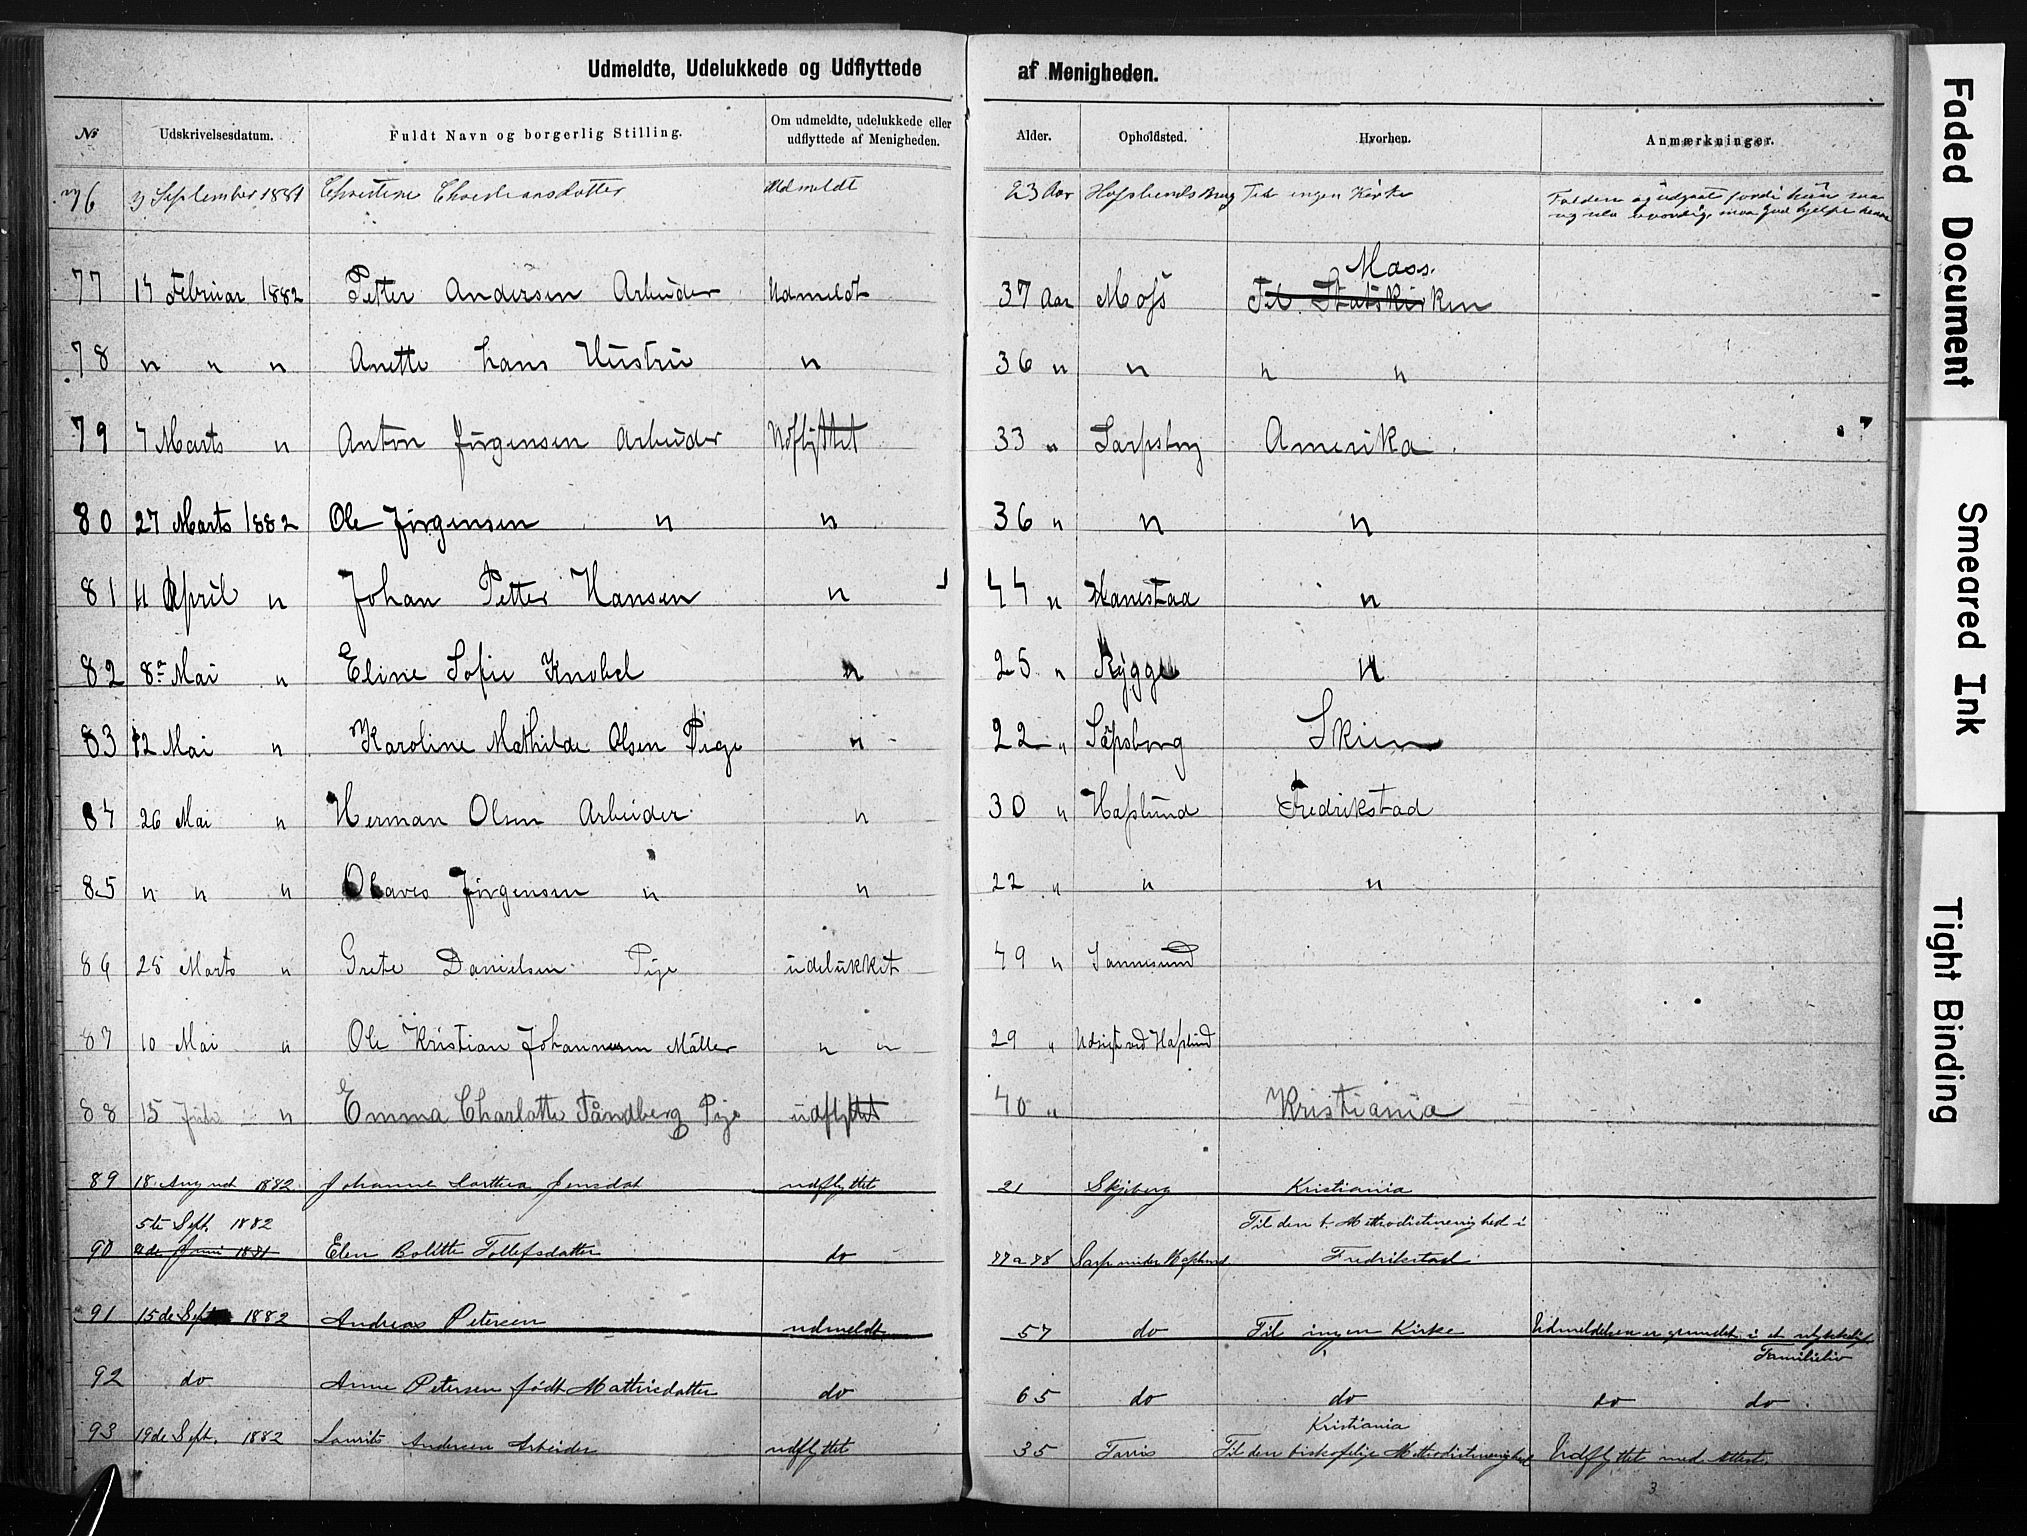 Udmeldte, Udelukkede og Udflyttede af Menigheden.
No Udskrivelsesdatum. Fuldt Navn og borgerlig Stilling. Om udmeldte, udelukkede eller udflyttede af Menigheden. Alder. Opholdsted. Hvorhen. Anmærkninger.
76 3 September 1881 Christine Christiansdatter Udmeldt 23 Aar Hafslunds Brug Til ingen Kirke
Mass.
77 14 Februar 1882 Petter Andersen Arbeider Udmeldt 37 Aar Moss Til Statskirken
78 " " " Anette hans Hustru " 36 " " " "
79 4 Marts " Anton Jörgensen Arbeider Udflyttet 33 " Sarpsborg Amerika.
80 27 Marts 1882 Ole Jörgensen " " 36 " " "
81 11 April " Johan Petter Hansen " 44 " Hanestaa "
82 8de Mai " Eline Sofie Knobel " 25 " Rygge "
83 12 Mai " Karoline Mathilde Olsen Pige " 22 " Sarpsborg Skien
84 26 Mai " Herman Olsen Arbeider " 30 " Hafslund Fredrikstad
85 " " " Olaves Jörgensen " " 22 " " "
86 25 Marts " Grete Danielsen Pige udelukket 49 " Sannesund
87 10 Mai " Ole Kristian Johannesen Möller " " 29 " ved Hafslund
88 15 " Emma Charlotte Tåndberg Pige udflyttet 40 " Kristiania
89 18. August 1882. Johanne Larthea Jensdat udflyttet 21 Skjeberg Kristiania
5te Sept. 1882 Til den b. Methodistmenighed i
90 Juni 1881 Elen Bolette Tollefsdatter do 77 a 78 Sarp under Hafslund Fredrikstad
91 15de Sept 1882 Andreas Petersen udmeldt 57 do Til ingen Kirke Udmeldelsen er grundet i et ulykkeligt
Familieliv
92 do Anne Petersen født Mathisdatter do 65 do do do do.
Kristiania
93 19de Sept. 1882 Laurits Andersen Arbeider udflyttet 35 Tarris Til den biskoplige Methodistmenighed Udflyttet med Attest.
3
Faded Document
Smeared Ink
Tight Binding